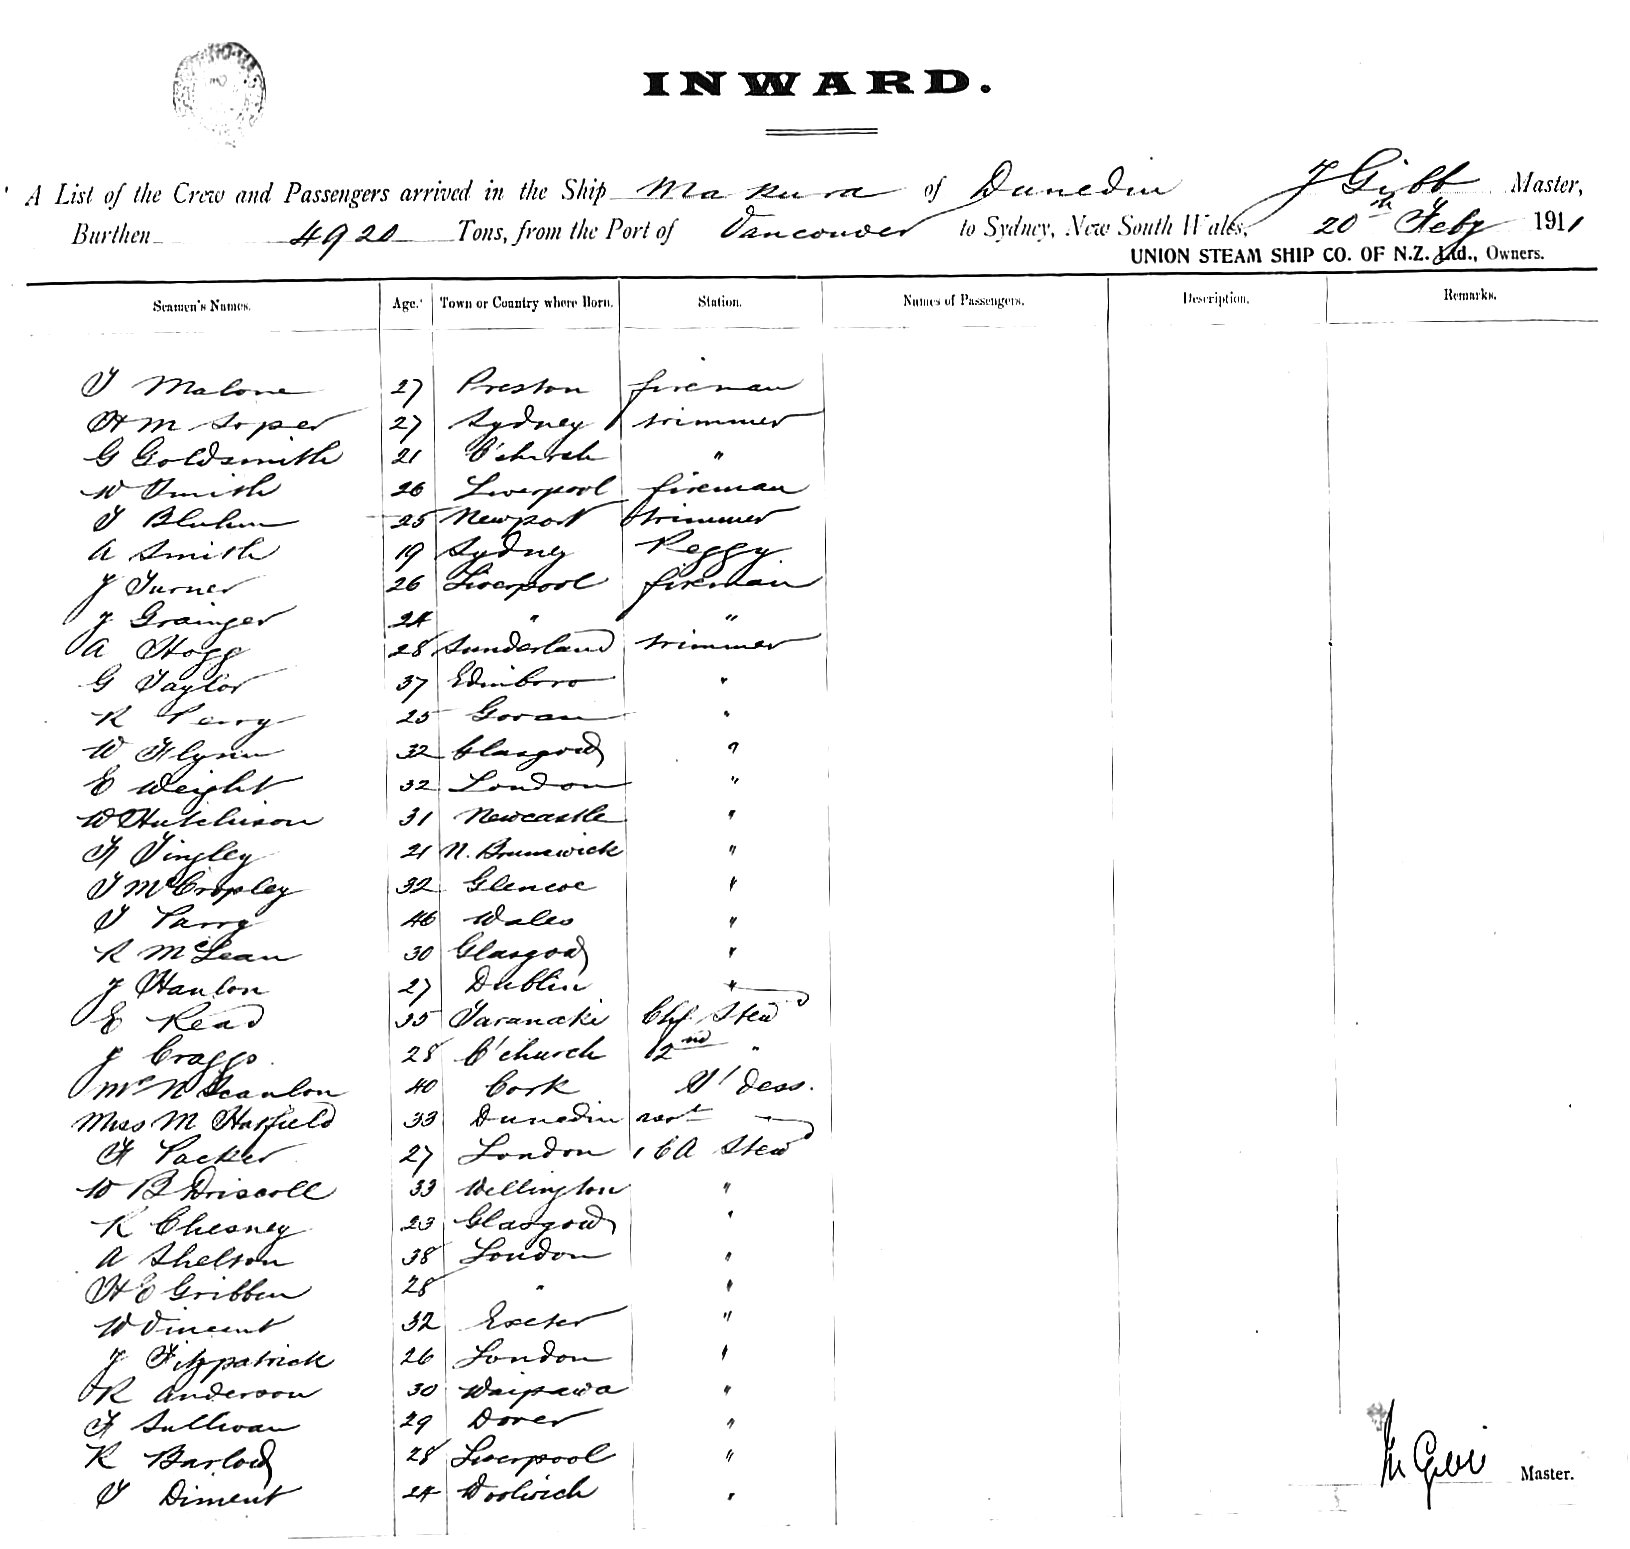 INWARD.
A List of the Crew and Passengers arrived in the Ship Makura of Dunedin J Gibb Master,
Burthen 4920 Tons, from the Port of Vancouver to Sydney, New South Wales, 20th Feby 1911
UNION STEAM SHIP CO. OF N.Z. Ltd., Owners.
Seamen's Names. Age. Town or Country where Born. Station. Names of Passengers. Description. Remarks.
T Malone 27 Preston fireman
H M Soper 27 Sydney trimmer
G Goldsmith 21 C'church "
W Smith 26 Liverpool fireman
T Bluhm 25 Newport trimmer
A Smith 19 Sydney Peggy
J Turner 26 Liverpool fireman
J Grainger 24 " "
A Hogg 28 Sunderland trimmer
G Taylor 37 Edinboro "
R Perry 25 Govan "
W Flynn 32 Glasgow "
E Weight 32 London "
W Hutchison 31 Newcastle "
F Tingley 21 N. Brunswick "
T McCropley 32 Glencoe "
T Parry 46 Wales "
R McLean 30 Glasgow "
J Hanlon 27 Dublin "
E Read 35 Taranaki Chf Stewd
J Craggs 28 C'church 2nd "
Mrs N Scanlon 40 Cork S'dess.
Miss M Hatfield 33 Dunedin
F Packer 27 London Stewd
W B Driscoll 33 Wellington "
R Chesney 23 Glasgow "
A Shelson 38 London "
H E Gribben 28 " "
W Vincent 32 Exeter "
J Fitzpatrick 26 London "
R Anderson 30 Waipawa "
F Sullivan 29 Dover "
R Barlow 28 Liverpool "
T Diment 24 Woolwich "
Master.